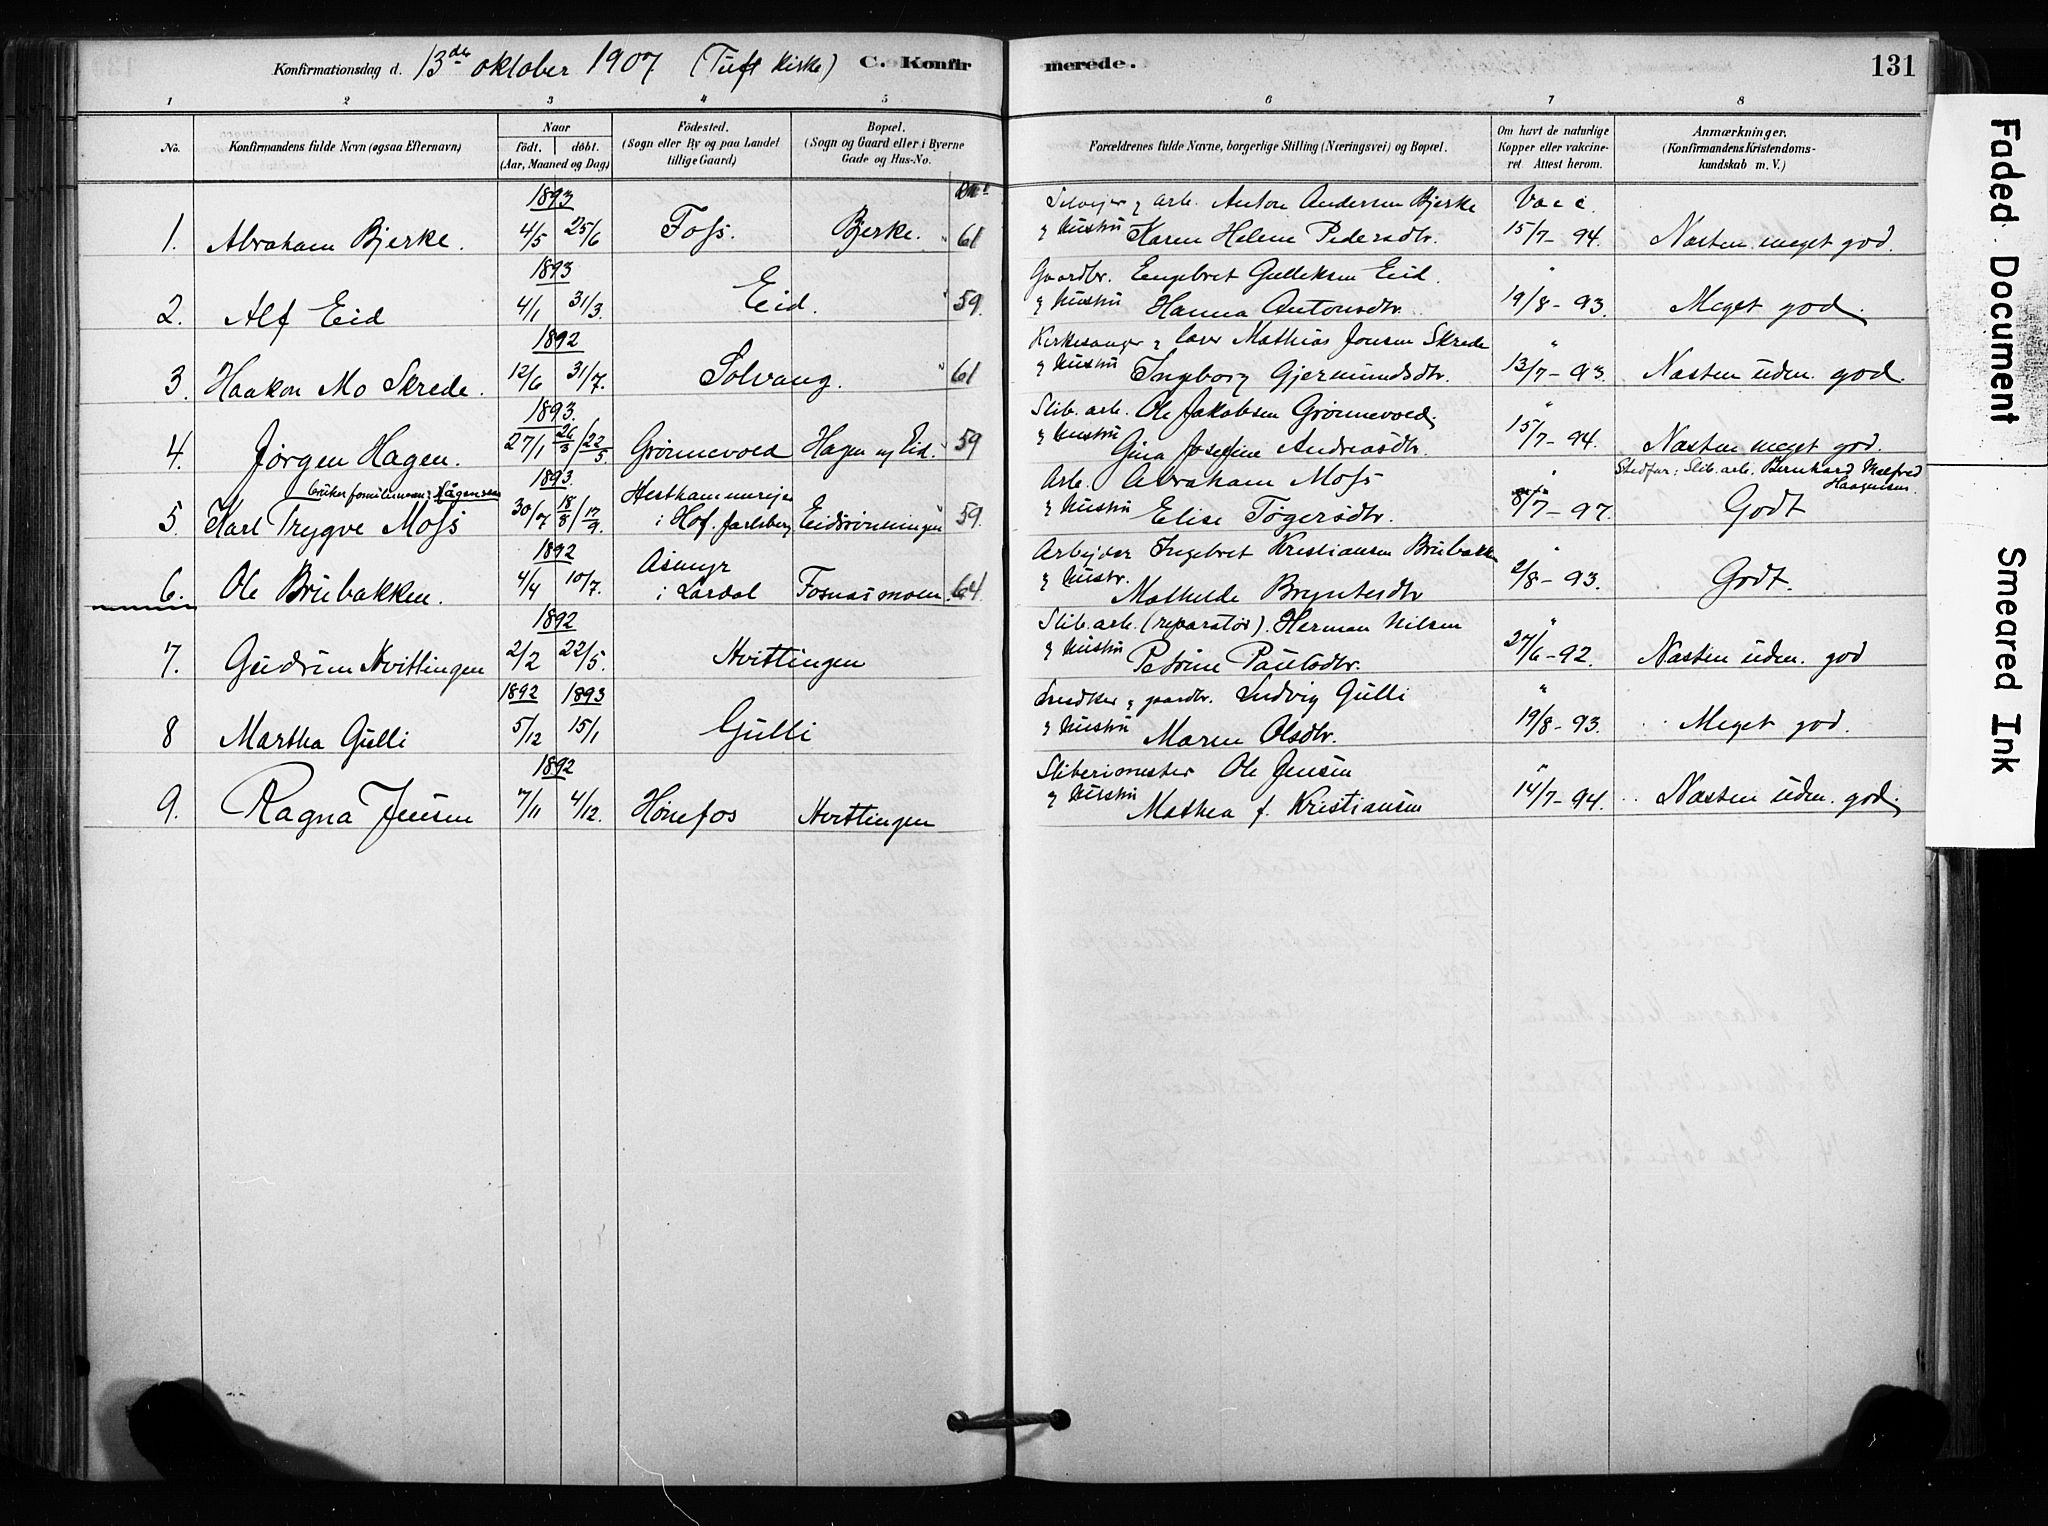 Konfirmationsdag d. 13de oktober 1907 (Tuft Kirke) C. Konfirmerede. 131
1 2 3 4 5 6 7 8
No. Konfirmandens fulde Navn (ogsaa Efternavn) Naar født. døbt. (Aar, Maaned og Dag) Fødested. (Sogn eller By og paa Landet tillige Gaard) Bopæl. (Sogn og Gaard eller i Byerne Gade og Hus-No. Forældrenes fulde Navne, borgerlige Stilling (Næringsvei) og Bopæl. Om havt de naturlige Kopper eller vakcineret. Attest herom. Anmærkninger. (Konfirmandens Kristendomskundskab m. V.)
1893 Selvejer & arb. Anton Andersen Bjerke Vacc.
1. Abraham Bjerke. 4/5 25/6 Foss. Bjerke. " 61 & Hustru Karen Helene Pedersdtr. 15/7-94. Næsten meget god.
1893 Gaardbr. Engebret Gulleksen Eid. "
2. Alf Eid 4/1 31/3. Eid. " 59. & Hustru Hanna Antonsdtr. 19/8-93. Meget god.
1892 Kirkesanger & lærer Mathias Jonsen Skrede "
3. Haakon Mo Skrede. 12/6 31/7. Solvang. " 61 & Hustru Ingeborg Gjermundsdtr. 13/7-93. Næsten uden. god.
1893. Slib. arb. Ole Jakobsen Grønnevold. "
4. Jørgen Hagen. 27/1 26/3 / 22/5. Grønnevold Hagen u/ Eid. 59 & Hustru Gina Josefine Andreasdtr. 15/7-94. Næsten meget god.
bruker familienavn: Hågensen 1893. Hesthammereje Arb. Abraham Moss " Stedfar: Slib. arb. Bernhard Haagensen.
5. Karl Trygve Moss 30/7 18/8 / 17/9. i Hof. Jarlsberg Eidsrønningen " 59. & Hustru Elise Tøgersdtr. 8/7-97. Godt
1892 Asmyr Arbejder Ingebret Kristiansen Brubakken "
6. Ole Brubakken. 4/4 10/7. i Lardal Fosnæsmoen. 64. & Hustr. Mathilde Bryntesdtr 2/8-93. Godt.
1892 Slib. arb. (reparatør). Herman Nilsen "
7. Gudrun Hvittingen 2/2 22/5. Hvittingen & Hustru Petrine Paulsdtr. 27/6-92. Næsten uden. god
1892 1893 Snedker & gaardbr. Ludvig Gulli "
8 Martha Gulli 5/12 15/1 Gulli & Hustru Maren Olsdtr. 19/8-93. Meget god.
1892 Sliberimester Ole Jensen "
9. Ragna Jensen 7/11 4/12. Hønefos Hvittingen & Hustru Mathea f. Kristiansen 14/7-94. Næsten uden. god.
Faded Document
Smeared Ink